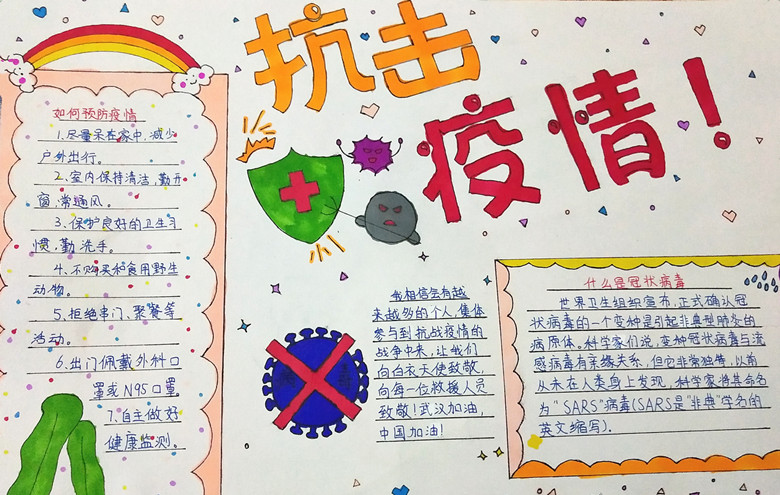 抗击
疫情！
如何预防疫情
1.尽量呆在家中，减少
户外出行。
2.室内保持清洁，勤开
窗，常通风。
3.保护良好的卫生习
惯，勤洗手。
4.不购买和食用野生
动物。
5.拒绝串门、聚餐等
活动。
6.出门佩戴外科口
罩或N95口罩。
7.自主做好
健康监测。
我相信会有越
来越多的个人，集体
参与到抗战疫情的
战争中来，让我们
向白衣天使致敬，
向每一位救援人员
致敬！武汉加油，
中国加油！
什么是冠状病毒
世界卫生组织宣布，正式确认冠
状病毒的一个变种是引起非典型肺炎的
病原体。科学家们说，变种冠状病毒与流
感病毒有亲缘关系，但它非常独特，以前
从未在人类身上发现，科学家将其命名
为“SARS”病毒(SARS是“非典”学名的
英文缩写)。